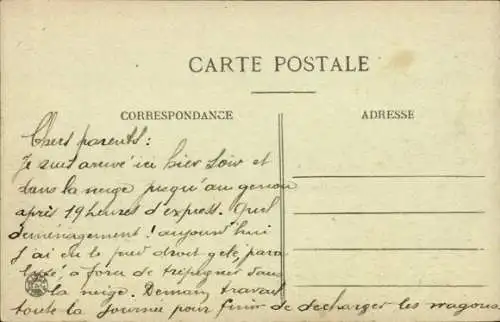 CARTE POSTALE
CORRESPONDANCE
ADRESSE
Chers parents :
Je suis arrivé ici hier soir et
dans la neige jusqu'au genou
après 19 heures d'express. Quel
déménagement ! aujourd'hui
j'ai eu le pied droit gelé, para
lysé à force de trépigner dans
la neige. Demain, travail
toute la journée pour finir de decharger les wagons